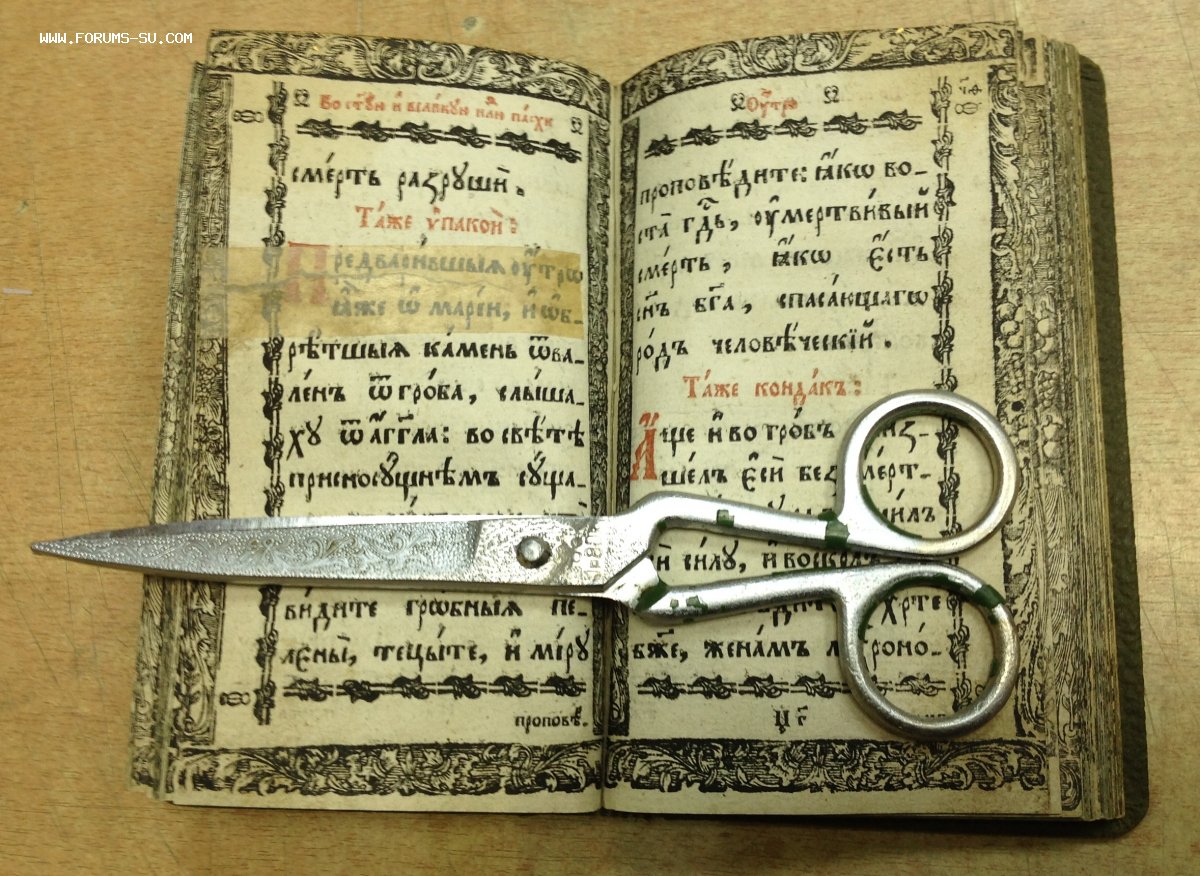 WWW.FORUMS-SU.COM
Во ст҃ꙋю и҆ вели́кꙋю нлⷭ҇ю па́схи
сме́рть разрꙋшѝ.
Та́же ѵ҆пакоѝ:
Предвари́вшыѧ ᲂу҆́трѡ
ꙗ҆̀же ѡ҆ марі́и, и҆ ѡ҆б-
рѣ́тшыѧ ка́мень ѿва-
ле́нъ ѿ гро́ба, слы́ша-
хꙋ ѿ а҆́гг҃ла: во свѣ́тѣ
присносꙋ́щнѣмъ сꙋ́ща-
ви́дите грѡ́бныѧ пе-
лєны̀, тецы́те, и҆ мі́рꙋ
проповѣ-
Оу҆́трѡ
проповѣ́дите: ꙗ҆́кѡ во-
ста̀ гдⷭ҇ь, ᲂу҆мертви́вый
сме́рть, ꙗ҆́кѡ є҆́сть
сн҃ъ бг҃а, спаса́ющагѡ
ро́дъ человѣ́ческїй.
Та́же конда́къ:
А҆́ще и҆ во гро́бъ
ше́лъ є҆сѝ без ме́рт-
си́лꙋ, и҆ воскр
хрⷭ҇те
бж҃е, жена́мъ
ч҃г